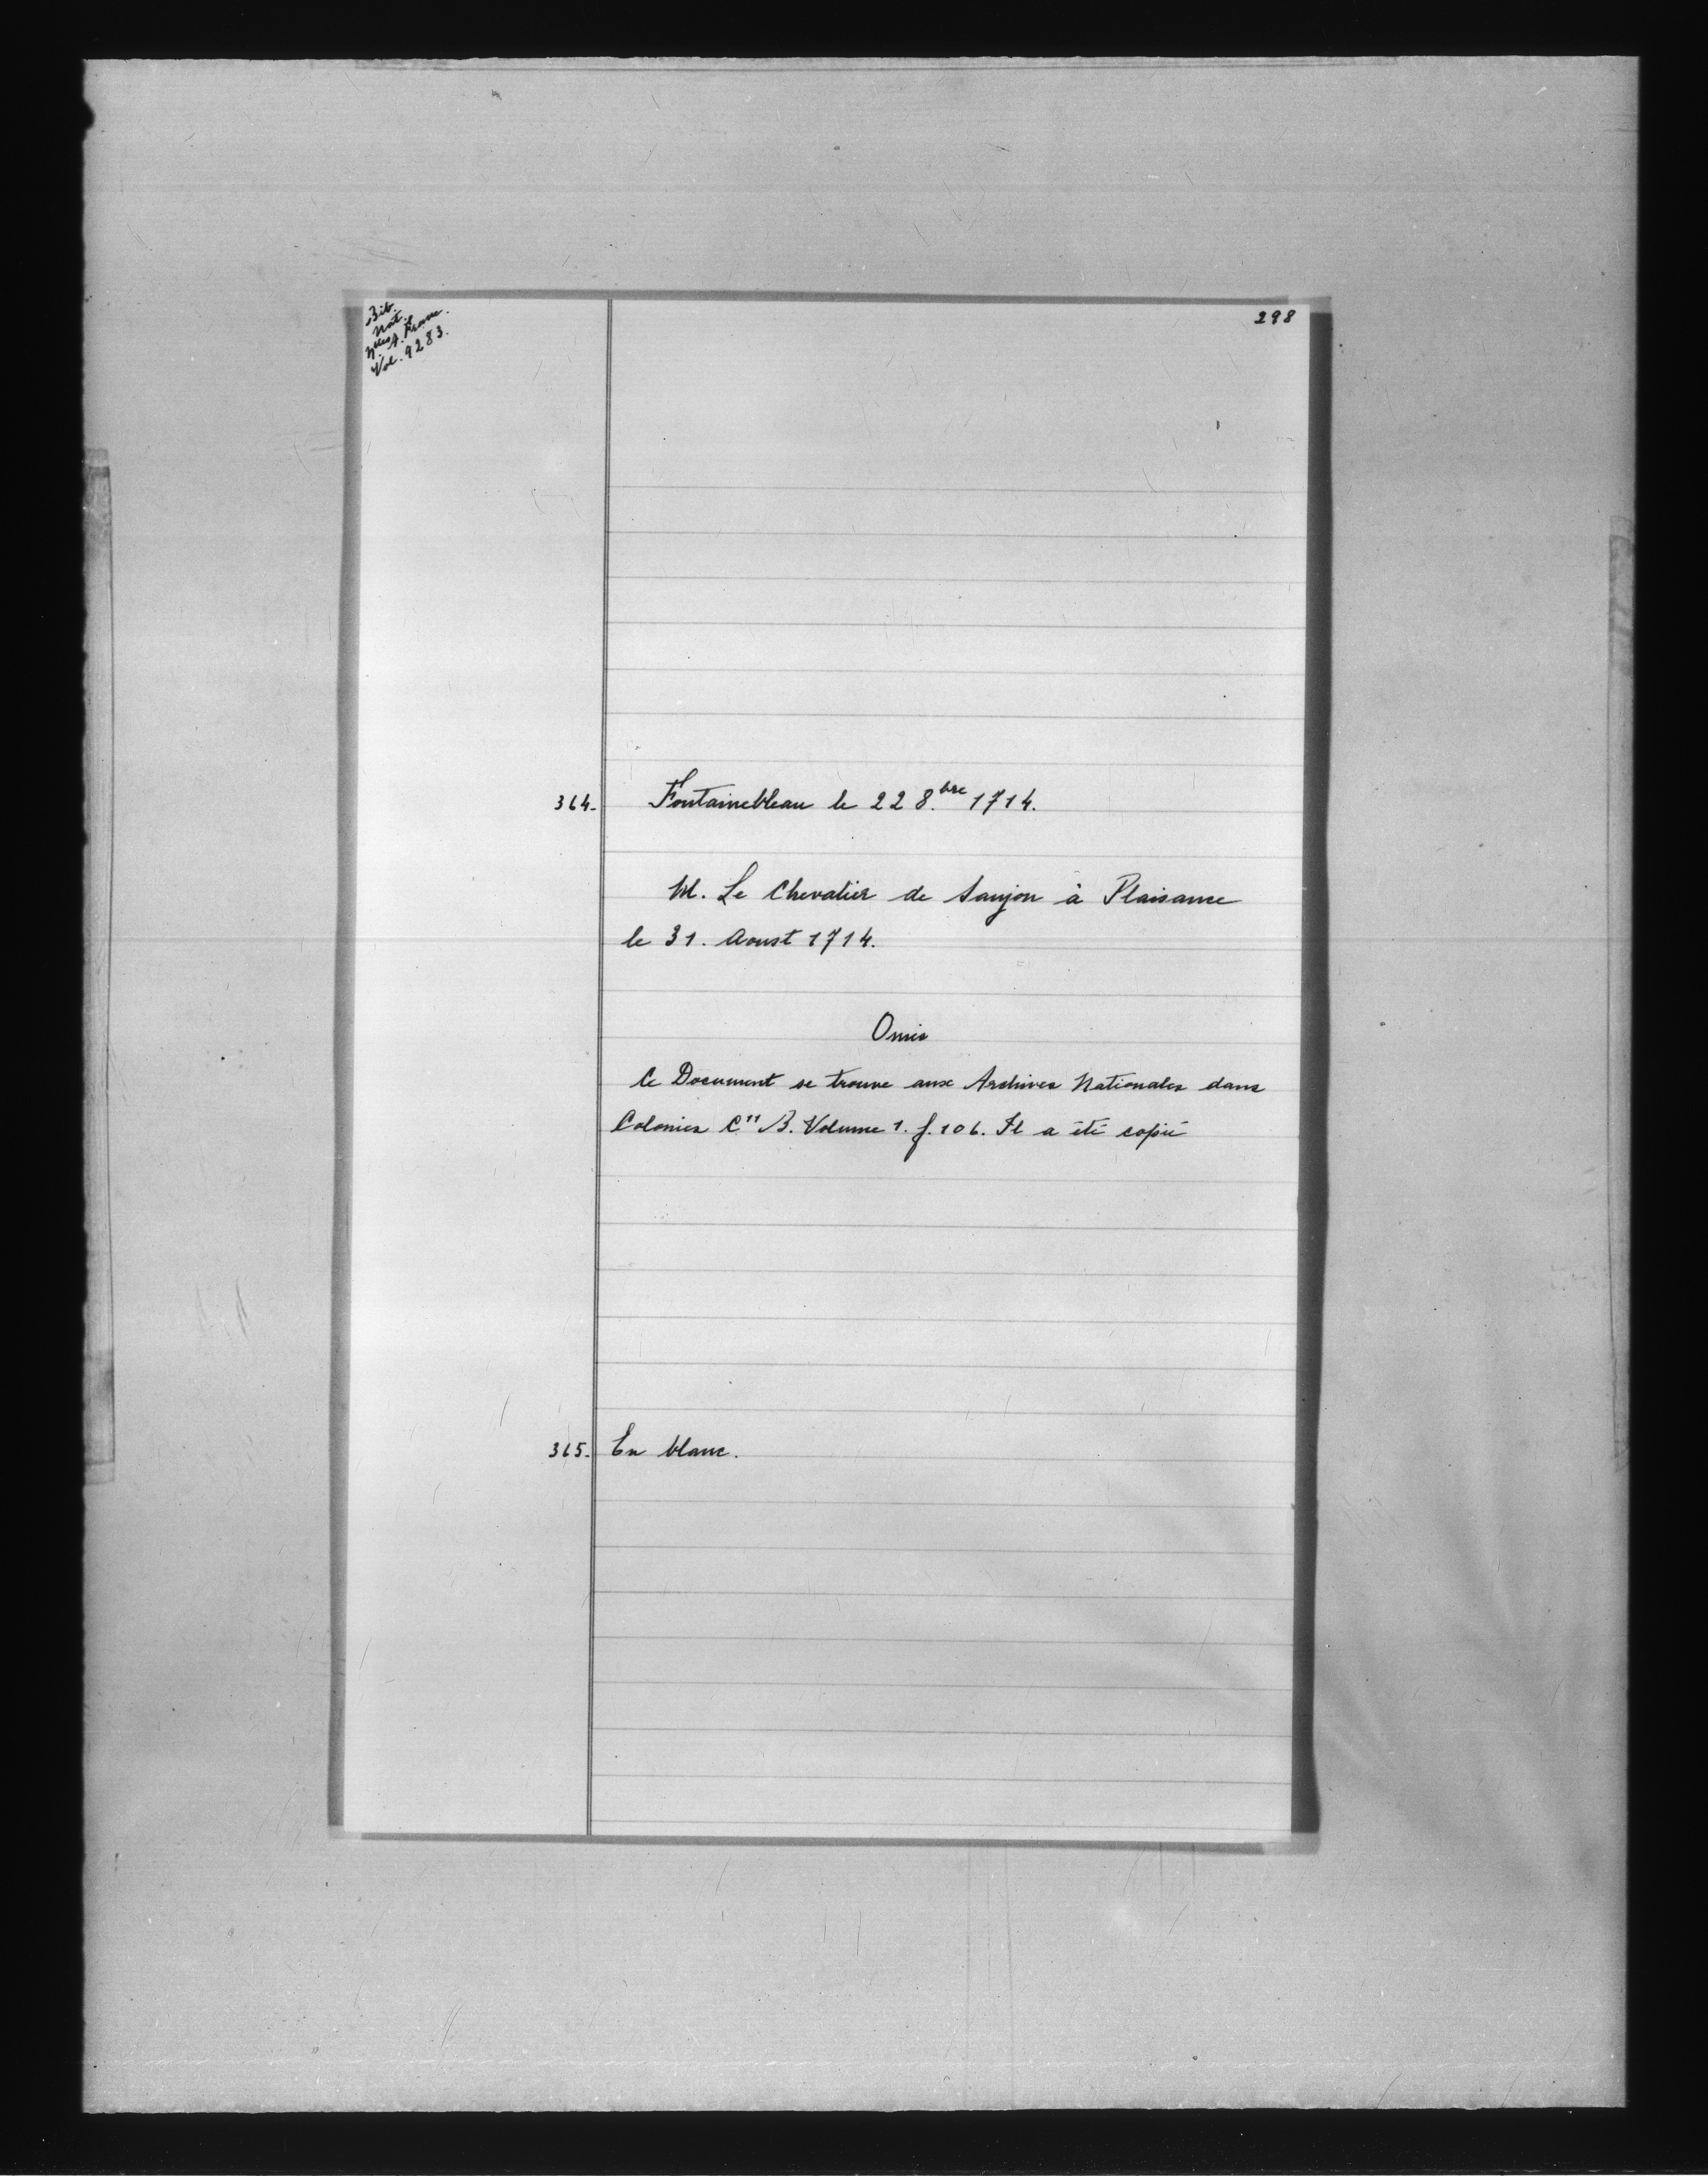 Bib.
Nat.
Nlles A. Franc.
Vol. 9283.
298
364. Fontainebleau le 22 8.bre 1714.
M. Le Chevalier de Saujon à Plaisance
le 31. Aoust 1714.
Omis
Ce Document se trouve aux Archives Nationales dans
Colonies C11 B. Volume 1. f. 106. Il a été copié
365. En blanc.